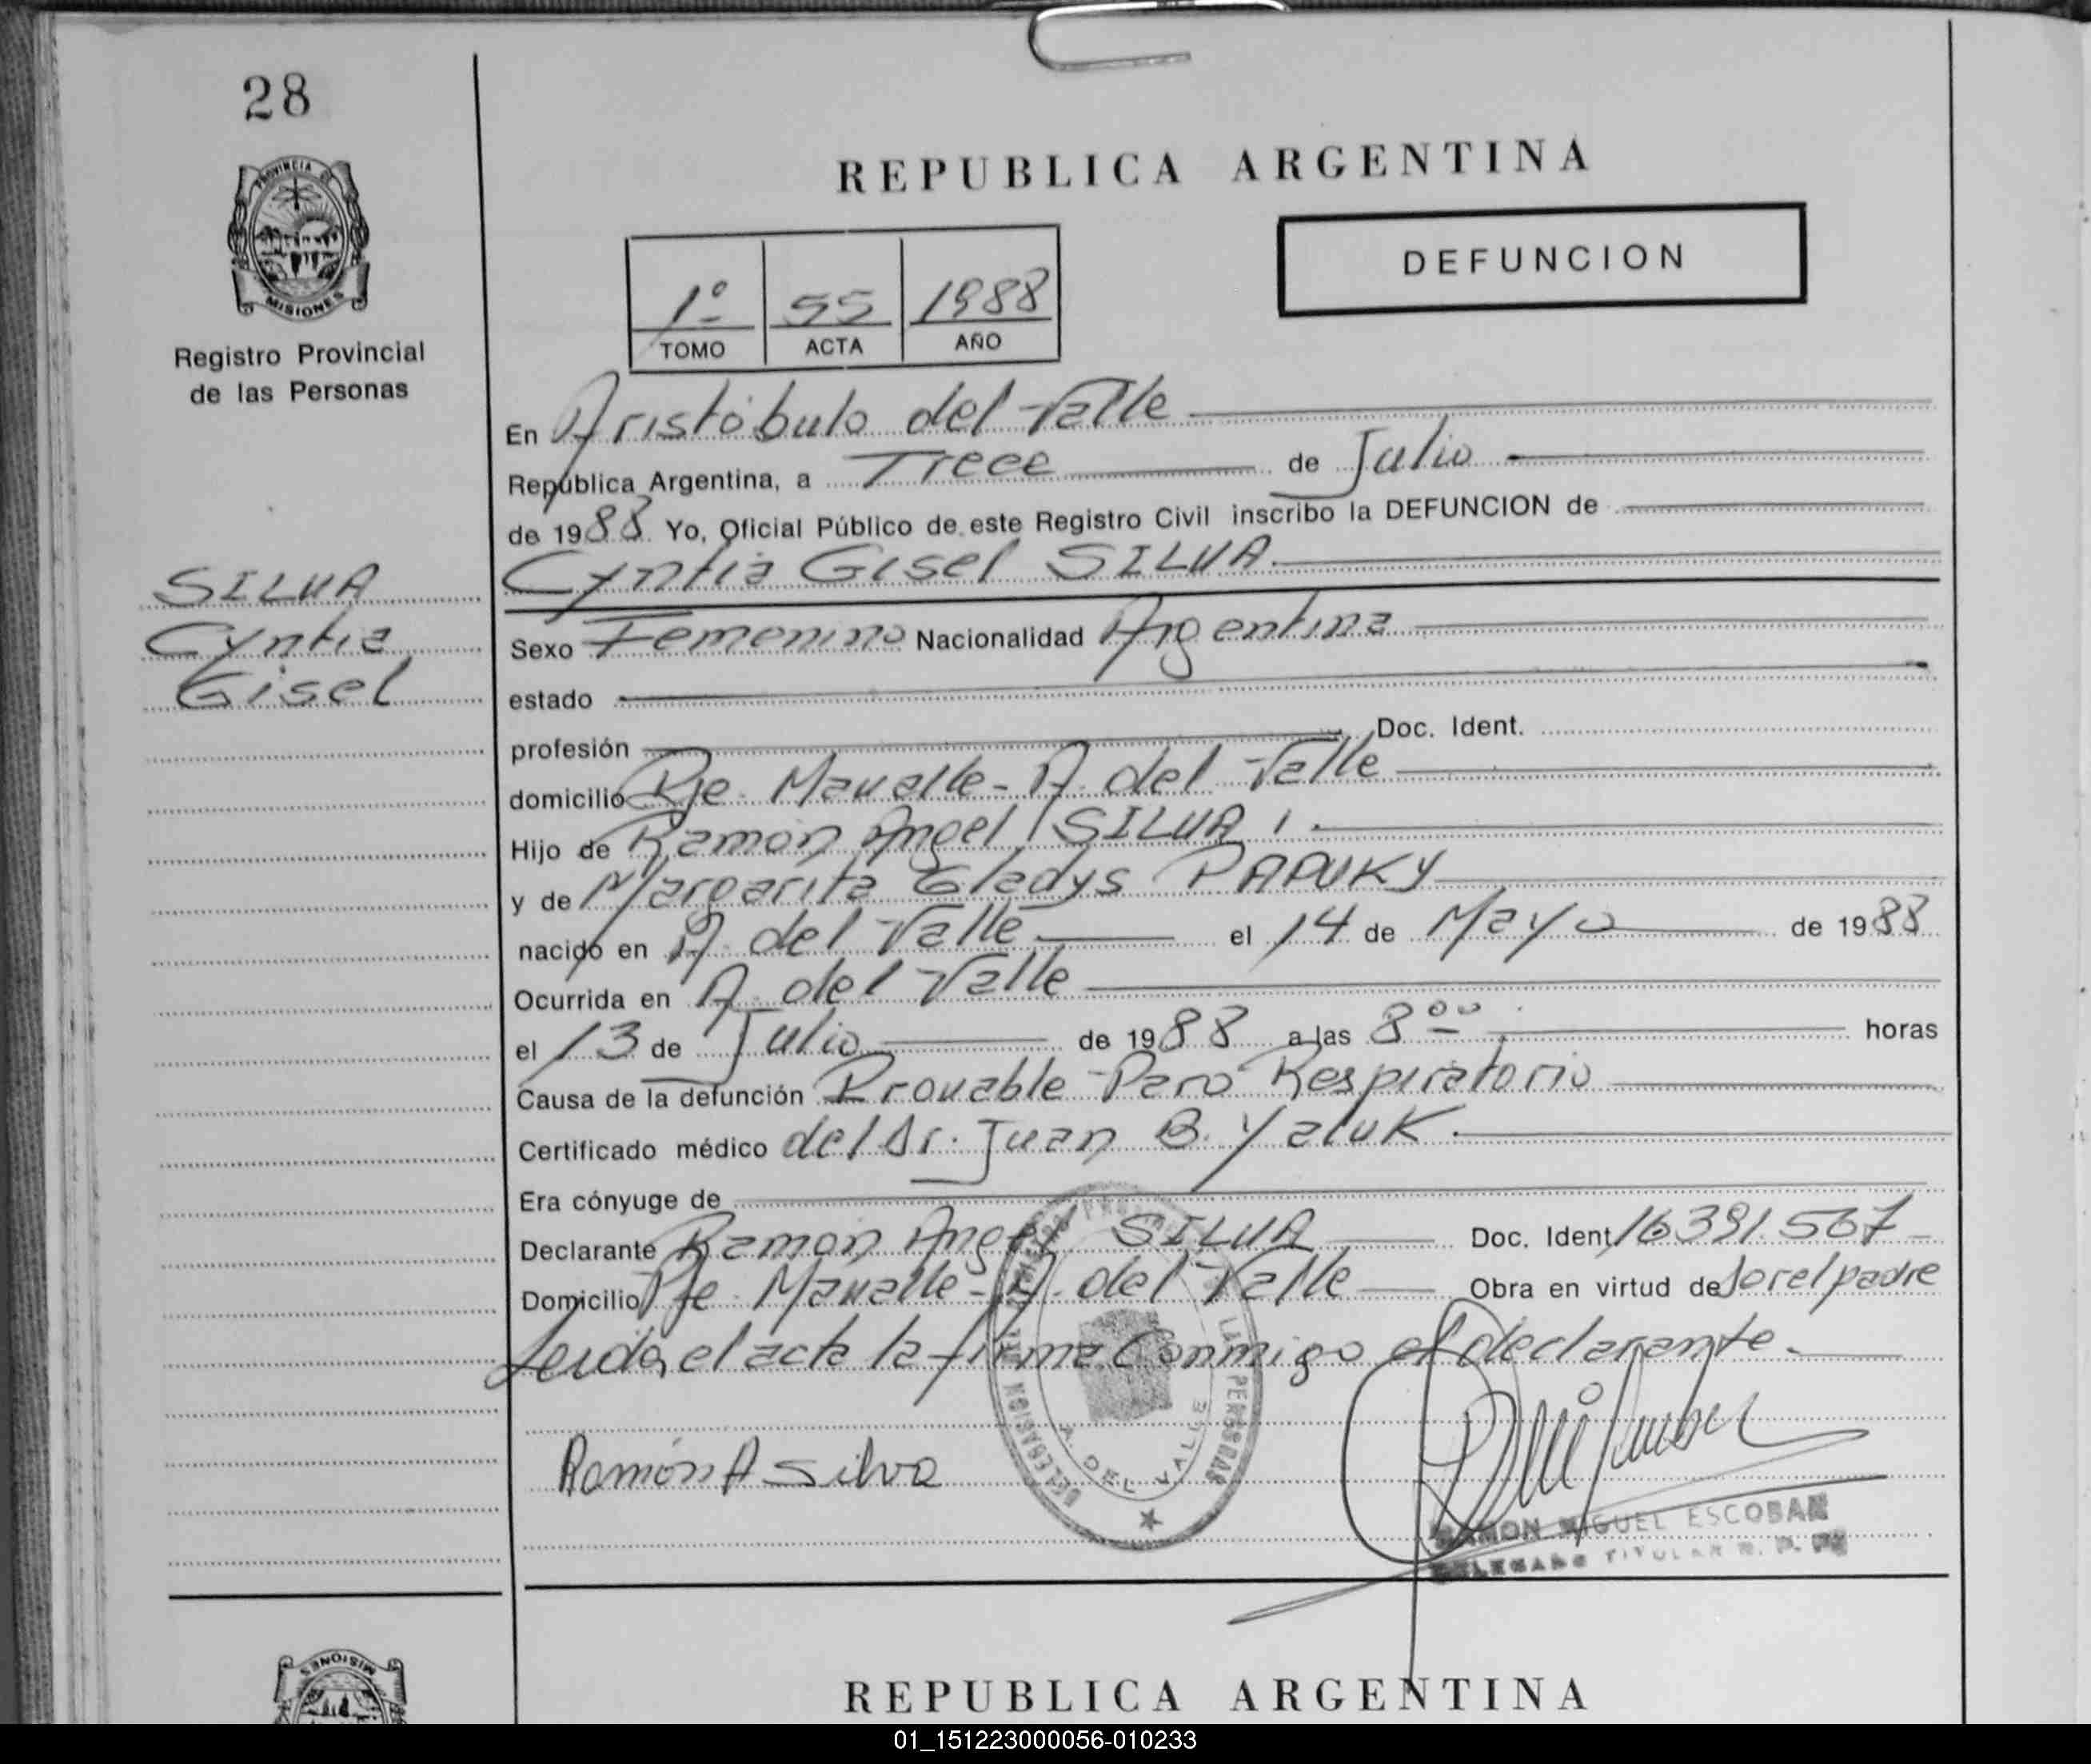 28
PROVINCIA DE
MISIONES
Registro Provincial
de las Personas
SILVA
Cyntia
Gisel
REPUBLICA ARGENTINA
DEFUNCION
1º 55 1988
TOMO ACTA AÑO
En Aristóbulo del Valle
República Argentina, a Trece de Julio
de 1988 Yo, Oficial Público de este Registro Civil inscribo la DEFUNCION de
Cyntia Gisel SILVA.
Sexo Femenino Nacionalidad Argentina
estado
profesión Doc. Ident.
domicilio Pje. Mavalle - A. del Valle
Hijo de Ramón Angel SILVA
y de Margarita Gladys PAPUKY
nacido en A. del Valle el 14 de Mayo de 1988
Ocurrida en A. del Valle
el 13 de Julio de 1988 a las 8 00 horas
Causa de la defunción Provable Paro Respiratorio
Certificado médico del Dr. Juan B. Yaluk.
Era cónyuge de
Declarante Ramón Angel SILVA Doc. Ident. 16391.567
Domicilio Pje. Mavalle - A. del Valle Obra en virtud de ser el padre
Leida el acta la firma Conmigo el declarante.
Ramón A Silva
A. DEL VALLE
RAMON MIGUEL ESCOBAR
DELEGADO TITULAR R. P. P.
MISIONES
REPUBLICA ARGENTINA
01_151223000056-010233